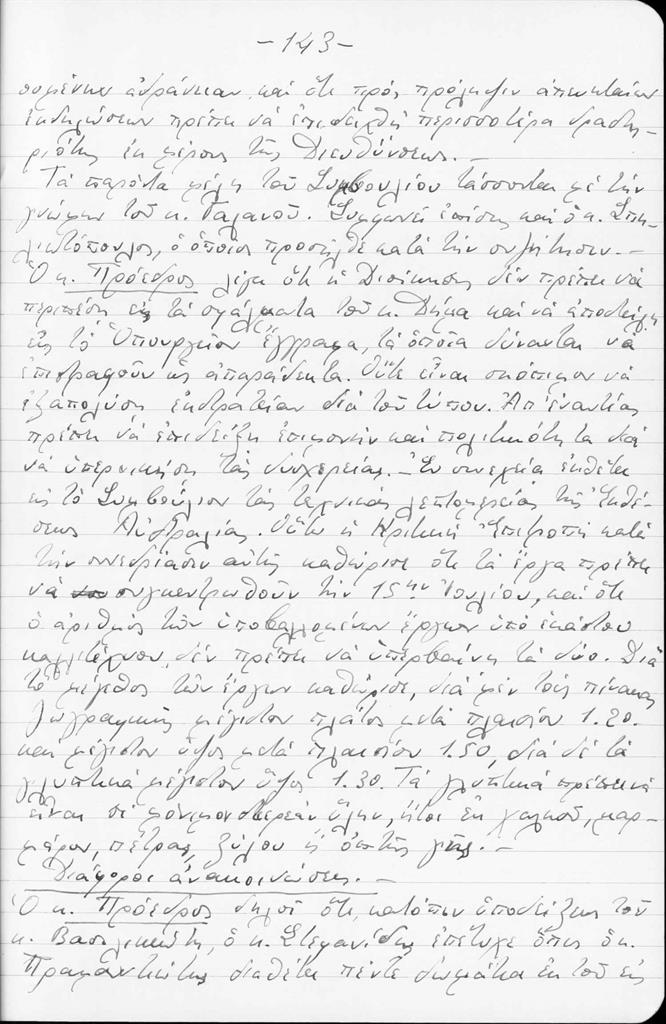 -143-
σομένην ἀδράνειαν, καί ὅτι πρός πρόληψιν ἀπευκταίων
ἐκδηλώσεων πρέπει νά ἐπιδειχθῇ περισσοτέρα δραστη-
ριότης ἐκ μέρους τῆς Διευθύνσεως.-
Τά παρόντα μέλη τοῦ Συμβουλίου τάσσονται μέ τήν
γνώμην τοῦ κ. Γαλανοῦ. Συμφωνεῖ ἐπίσης καί ὁ κ. Σπη-
λιωτόπουλος, ὁ ὁποῖος προσῆλθε κατά τήν συζήτησιν.-
Ὁ κ. Πρόεδρος λέγει ὅτι ἡ Διοίκησις δέν πρέπει νά
περιπέσῃ εἰς τά σφάλματα τοῦ κ. Δήμα καί νά ἀποστείλῃ
εἰς τό Ὑπουργεῖον ἔγγραφα, τά ὁποῖα δύνανται νά
ἐπιστραφοῦν ὡς ἀπαράδεκτα. Οὔτε εἶναι σκόπιμον νά
ἐξαπολύσῃ ἐκστρατείαν διά τοῦ τύπου. Ἀπ' ἐναντίας
πρέπει νά ἐπιδείξῃ ἐπιμονήν καί πολιτικότητα διά
νά ὑπερνικήσῃ τάς δυσχερείας.- Ἐν συνεχείᾳ ἐκθέτει
εἰς τό Συμβούλιον τάς τεχνικάς λεπτομερείας τῆς Ἐκθέ-
σεως Αὐστραλίας. Οὕτω ἡ Κριτική Ἐπιτροπή κατά
τήν συνεδρίασιν αὐτῆς καθώρισε ὅτι τά ἔργα πρέπει
νά συγκεντρωθοῦν τήν 15ην Ἰουλίου, καί ὅτι
ὁ ἀριθμός τῶν ὑποβαλλομένων ἔργων ὑπό ἑκάστου
καλλιτέχνου, δέν πρέπει νά ὑπερβαίνῃ τά δύο. Διά
τό μέγεθος τῶν ἔργων καθώρισε, διά μέν τούς πίνακας
ζωγραφικῆς μέγιστον πλάτος μετά πλαισίου 1.20.
καί μέγιστον ὕψος μετά πλαισίου 1.50, διά δέ τά
γλυπτικά μέγιστον ὕψος 1.30. Τά γλυπτικά πρέπει νά
εἶναι σέ μόνιμον στερεάν ὕλην, ἤτοι ἐκ χαλκοῦ, μαρ-
μάρου, πέτρας, ξύλου ἤ ὀπτῆς γῆς.-
Διάφοροι ἀνακοινώσεις.-
Ὁ κ. Πρόεδρος δηλοῖ ὅτι, κατόπιν ὑποδείξεως τοῦ
κ. Βασιλικιώτη, ὁ κ. Στεφανίδης ἐπέτυχε ὅπως ὁ κ.
Πραμαντιώτης διαθέτει πέντε δωμάτια ἐκ τοῦ εἰς